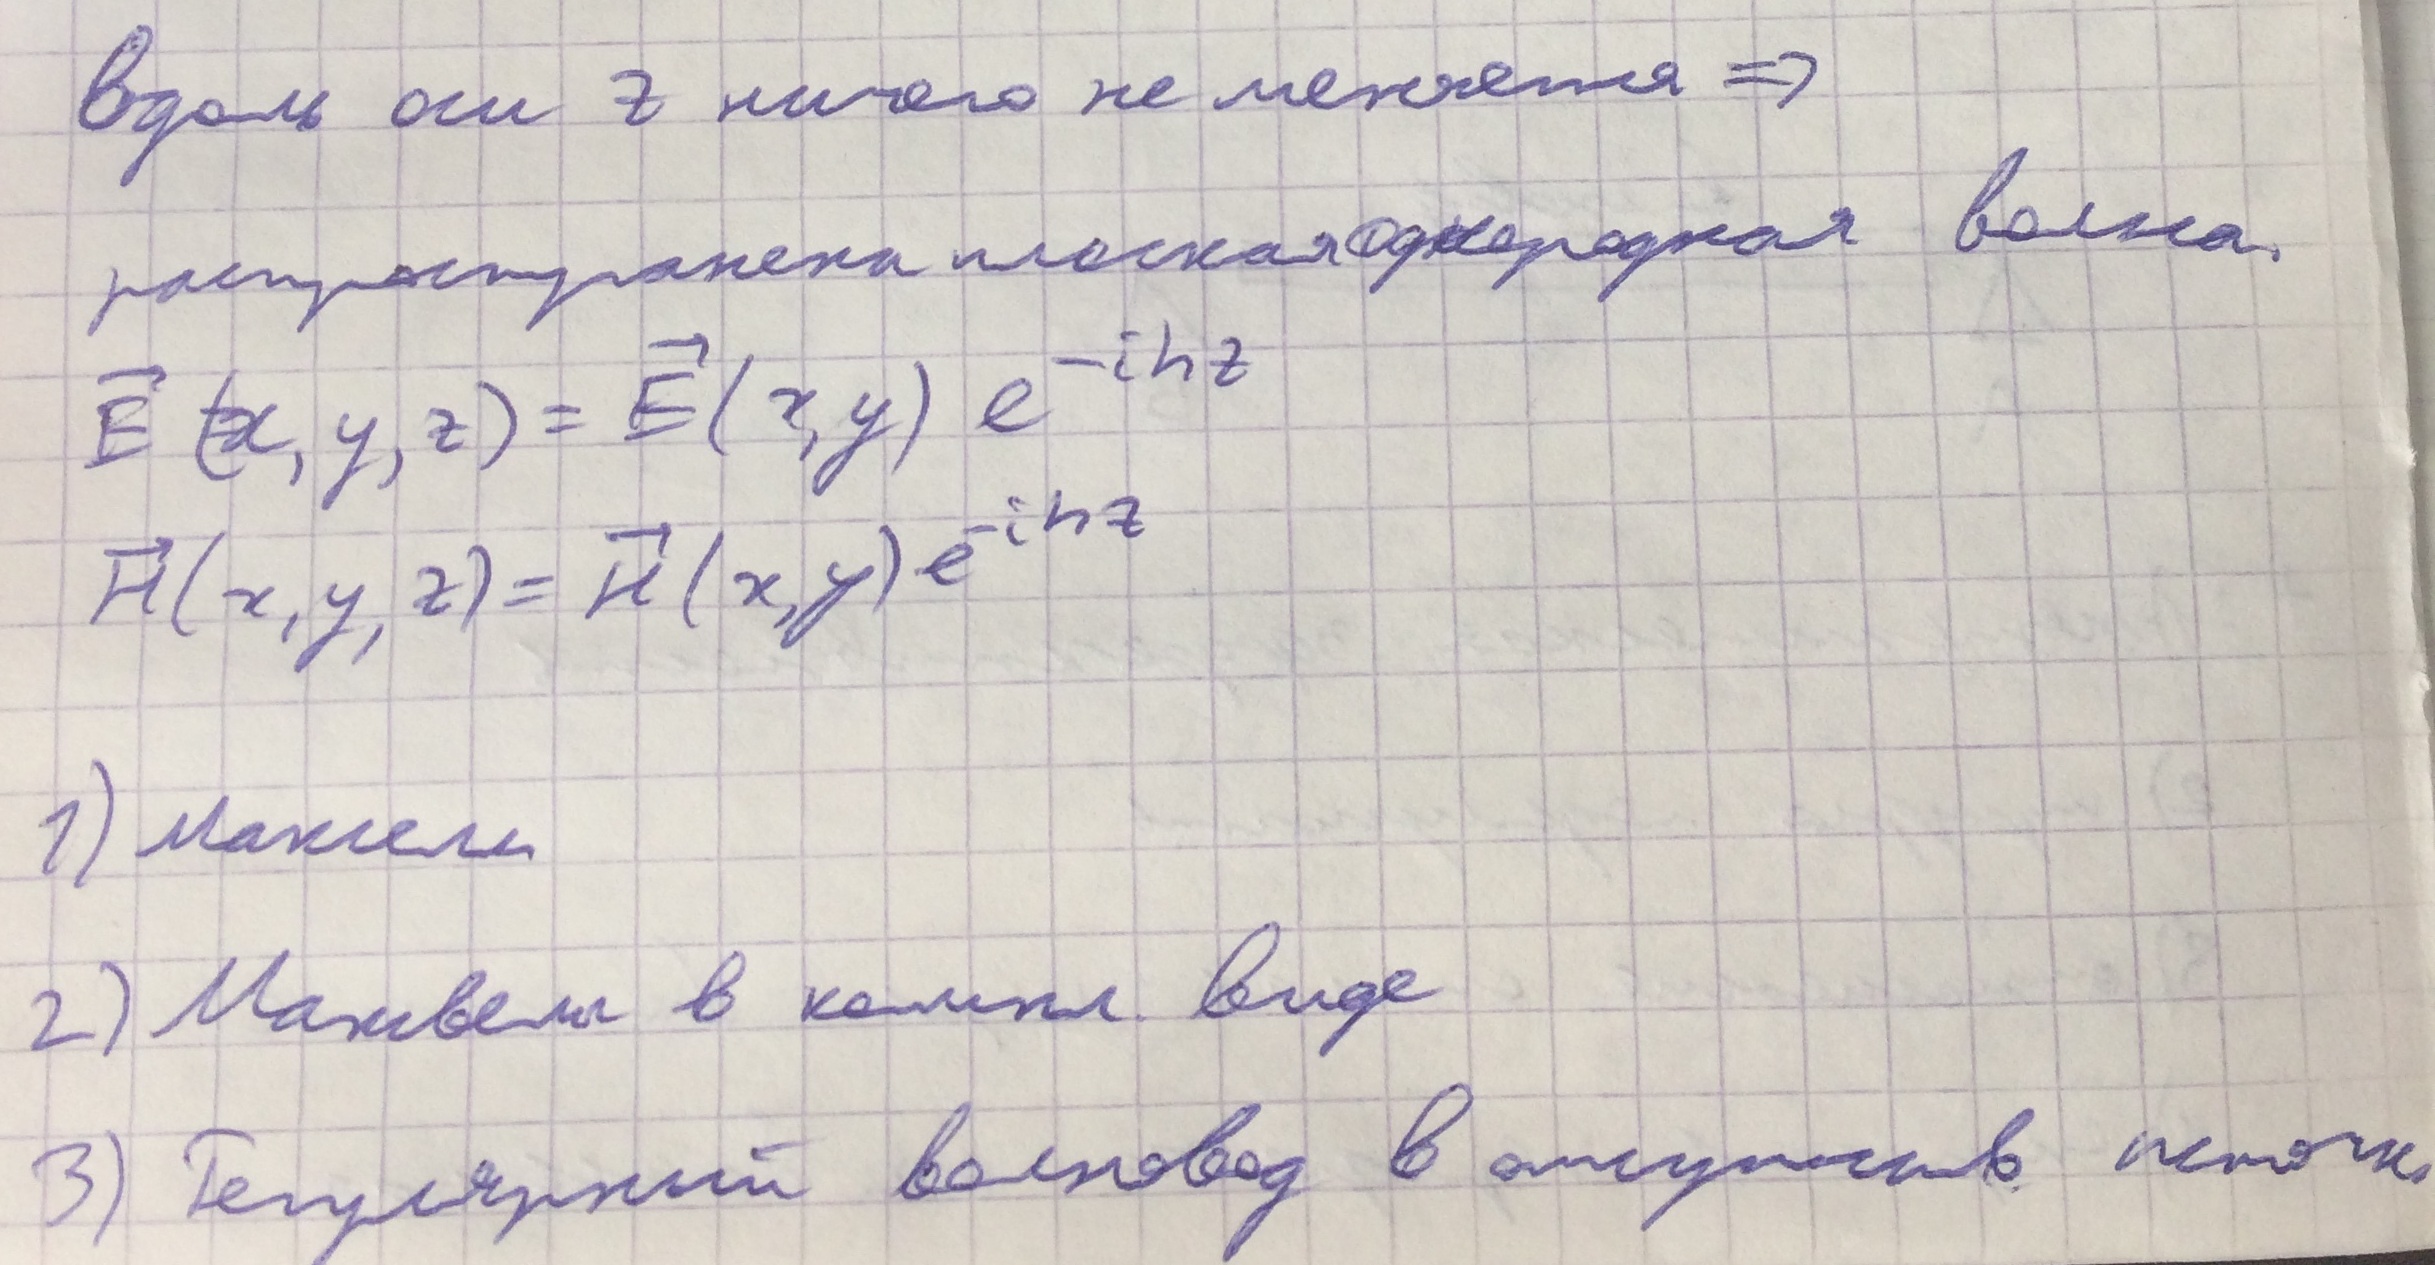 вдоль оси z ничего не меняется =>
распространена плоская однородная волна.
E⃗ (x, y, z) = E⃗ (x, y) e^{-ihz}
H⃗ (x, y, z) = H⃗ (x, y) e^{-ihz}
1) Максвелл
2) Максвелл в компл. виде
3) Регулярный волновод в отсутств. источн.